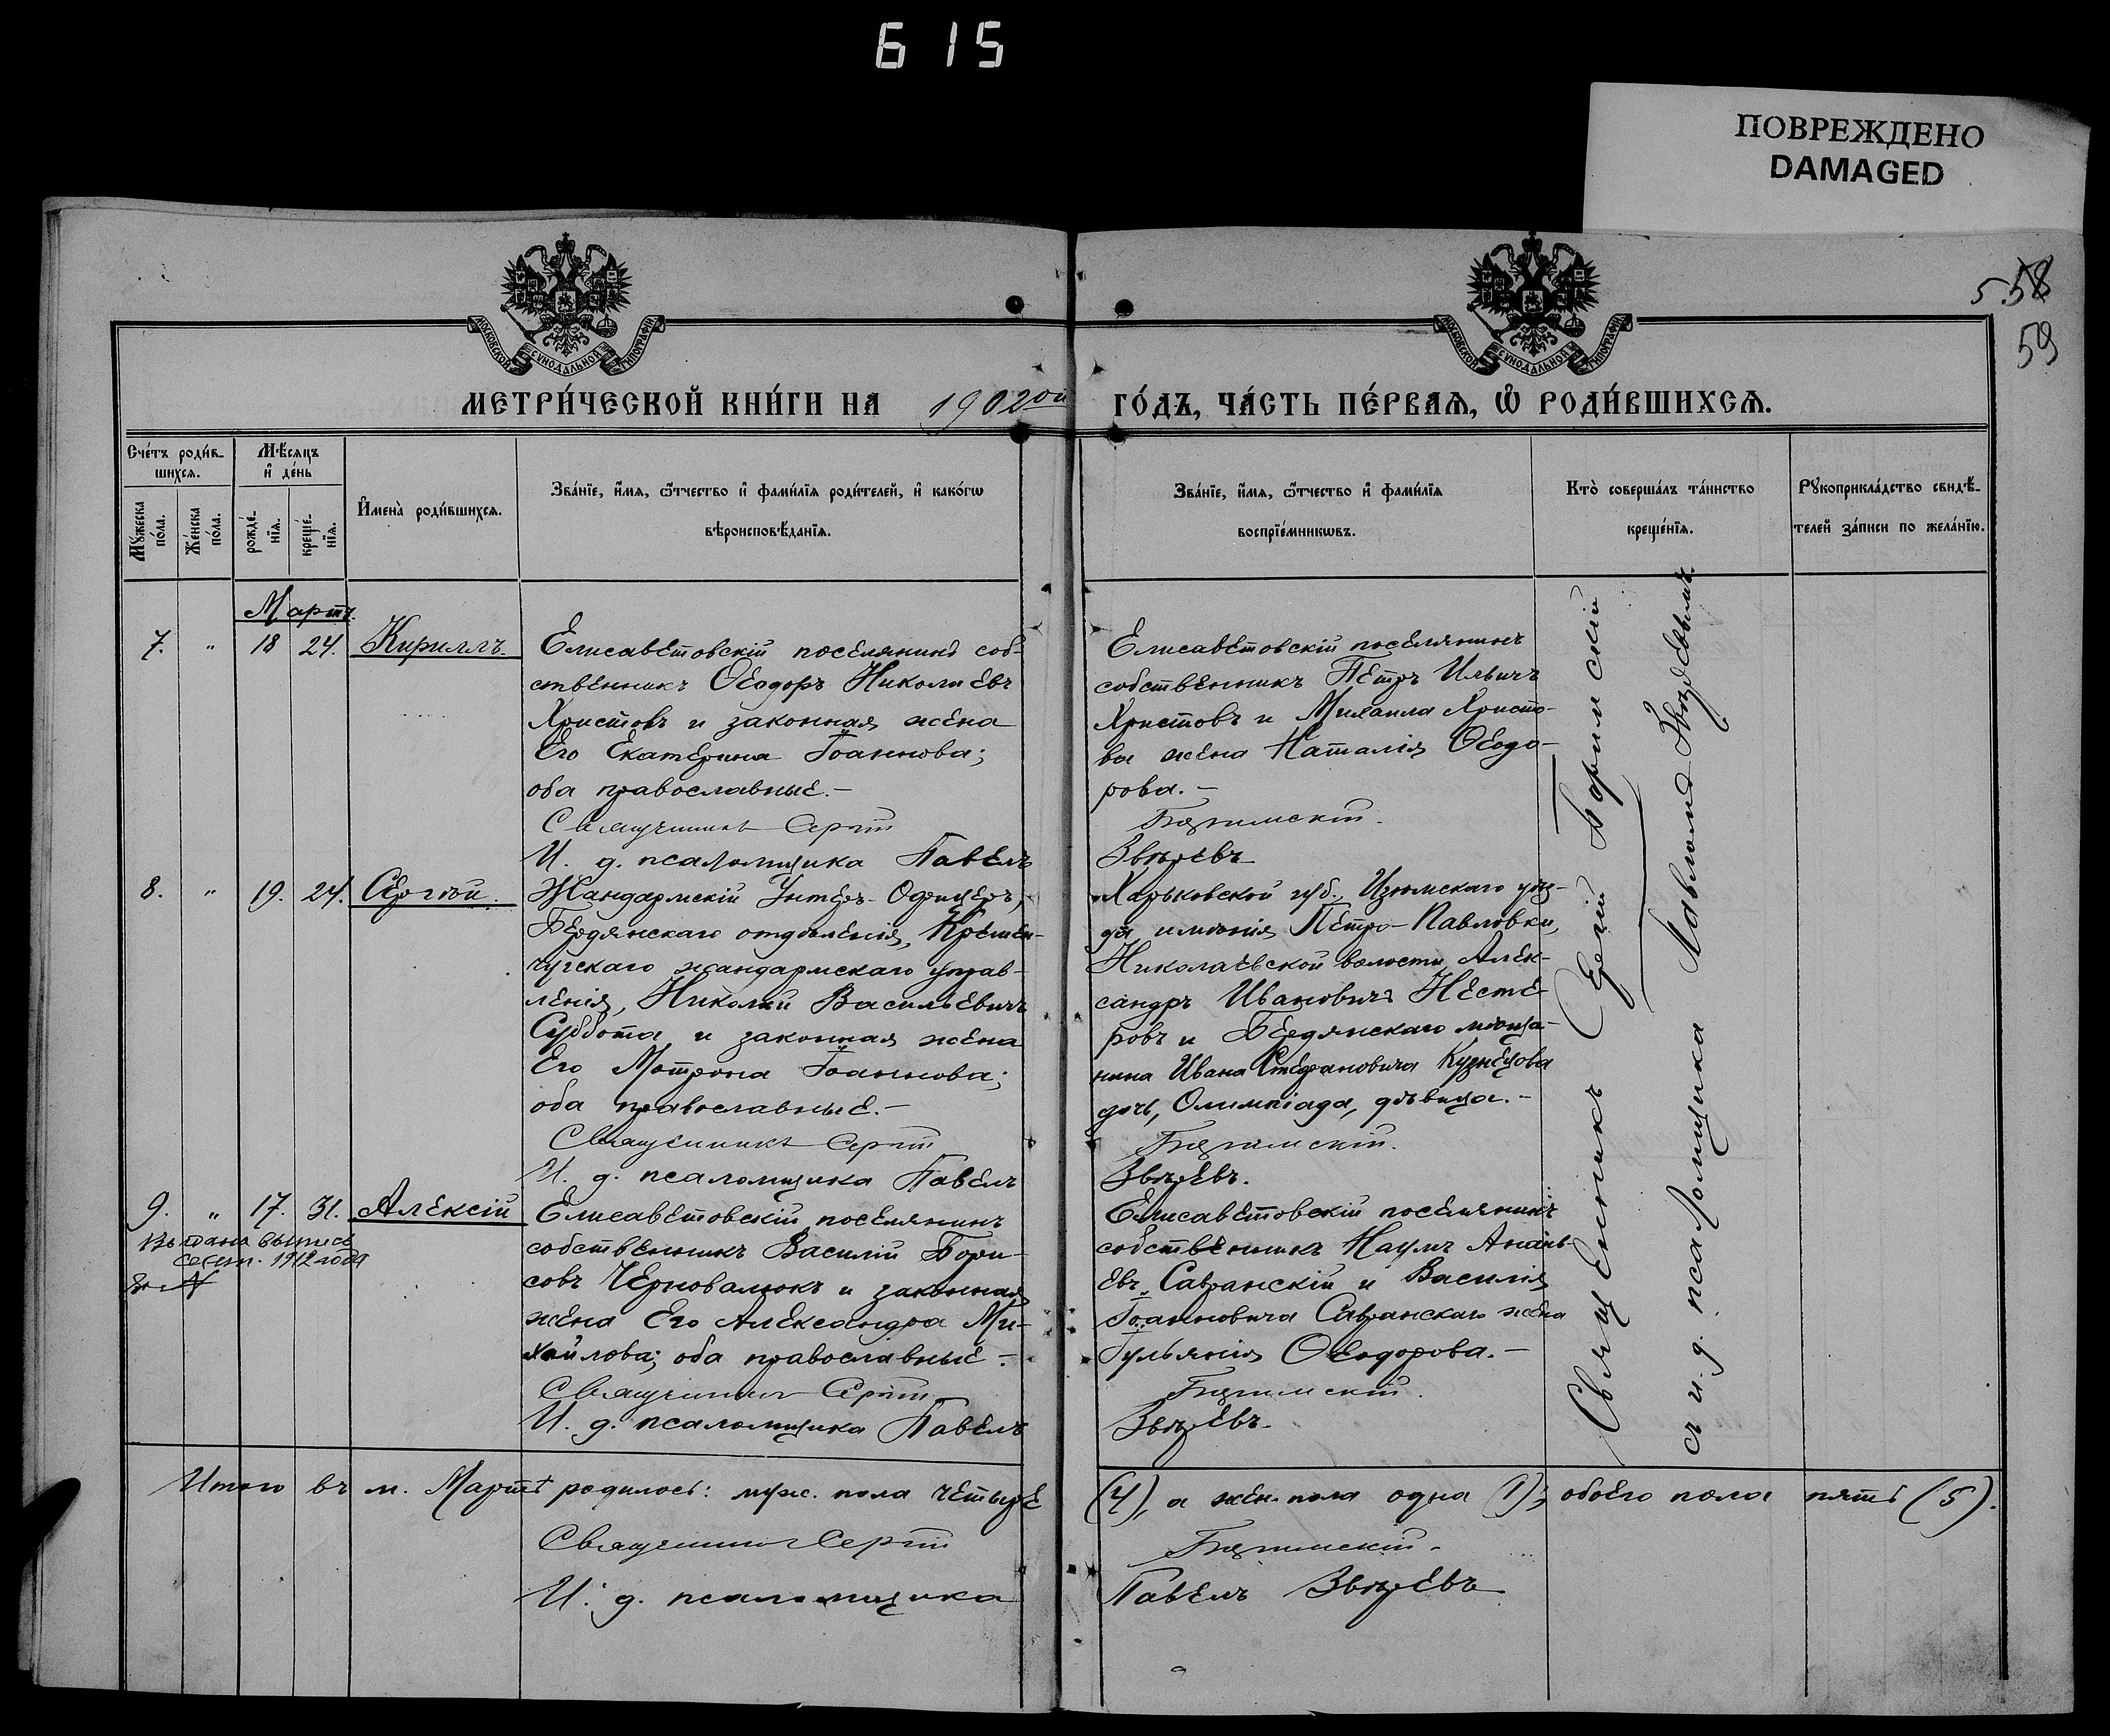 615
ПОВРЕЖДЕНО
DAMAGED
558
59
МОСКОВСКОЙ СУНОДАЛЬНОЙ ТИПОГРАФІИ
МОСКОВСКОЙ СУНОДАЛЬНОЙ ТИПОГРАФІИ
МЕТРИ́ЧЕСКОЙ КНИ́ГИ НА 1902ой ГО́ДЪ, ЧА́СТЬ ПЕ́РВАѦ, Ѽ РОДИ́ВШИХСѦ.
Сче́тъ роди́в-
шихсѧ.
Мѣ́сѧцъ
и҆ де́нь
Мꙋ́жеска
по́ла.
Же́нска
по́ла.
рожде́-
нїѧ.
креще́-
нїѧ.
И҆мена̀ роди́вшихсѧ.
Зва́нїе, и҆́мѧ, ѻ҆́тчество и҆ фами́лїѧ роди́телей, и҆ како́гѡ
вѣроисповѣ́данїѧ.
Зва́нїе, и҆́мѧ, ѻ҆́тчество и҆ фами́лїѧ
воспрїе́мникѡвъ.
Кто̀ соверша́лъ та́инство
креще́нїѧ.
Рꙋкоприкла́дство свидѣ́-
телей за́писи по жела́нїю.
Мартъ.
7. " 18 24. Кириллъ.
Елисаветовскій поселянинъ соб-
ственникъ Ѳеодоръ Николаевъ
Христовъ и законная жена
Его Екатерина Іоаннова;
оба православные.-
Священникъ Сергій
И. д. псаломщика Павелъ
Елисаветовскій поселянинъ
собственникъ Петръ Ильичъ
Христовъ и Михаила Христо-
ва жена Наталія Ѳеодо-
рова.-
Звѣревъ
8. " 19. 24. Сергѣй.
Жандармскій Унтеръ-Офицеръ,
Бердянскаго отдѣленія, Кремен-
чугскаго жандармскаго управ-
ленія, Николай Васильевичъ
Суббота и законная жена
Его Мотрона Іоаннова;
оба православные.-
Священникъ Сергій
И. д. псаломщика Павелъ
Харьковской губ., Изюмскаго уѣз-
да имѣнія Петро-Павловки,
Николаевской волости Алек-
сандръ Ивановичъ Несте-
ровъ и Бердянскаго мѣща-
нина Ивана Стефановича Кузнецова
дочь, Олимпіада, дѣвица.-
Звѣревъ.
9. " 17. 31. Алексій
Выдана выпись
сент. 1912 года
Елисаветовскій поселянинъ
собственникъ Василій Бори-
совъ Черновалюкъ и законная
жена Его Александра Ми-
хайлова; оба православные.-
Священникъ Сергій
И. д. псаломщика Павелъ
Елисаветовскій поселянинъ
собственникъ Наумъ Анань-
евъ Савранскій и Василія
Іоанновича Савранскаго жена
Гульянія Ѳеодорова.-
Звѣревъ.
Священникъ Сергій
съ и. д. псаломщика Павломъ Звѣревымъ.
Итого въ м. Мартѣ родилось: муж. пола четыре (4), а жен. пола одна (1); обоего пола пять (5).
Священникъ Сергій
И. д. псаломщика Павелъ Звѣревъ